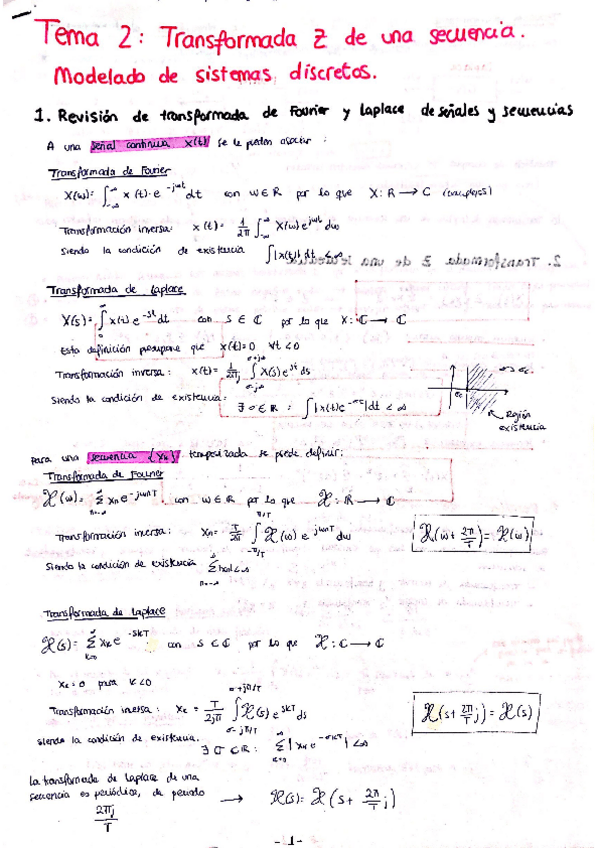 Tema 2: Transformada Z de una secuencia.
Modelado de sistemas discretos.
1. Revisión de transformada de Fourier y Laplace de señales y secuencias
A una señal continua x(t) se le pueden asociar :
Transformada de Fourier
X(ω)= ∫_{-∞}^{∞} x(t)·e^{-jωt} dt con ω∈R por lo que X: R → C (complejos)
Transformación inversa: x(t)= 1/2π ∫_{-∞}^{∞} X(ω) e^{jωt} dω
Siendo la condición de existencia ∫|x(t)| dt < ∞
2. Transformada Z de una secuencia
Transformada de Laplace
X(s)= ∫_0^∞ x(t) e^{-st} dt con s ∈ C por lo que X: C → C
Esta definición presupone que x(t)=0 ∀t<0
Transformación inversa: x(t)= 1/2πj ∫_{σ-j∞}^{σ+j∞} X(s) e^{st} ds
Siendo la condición de existencia: ∃ σ∈R : ∫|x(t)e^{-σt}| dt < ∞
Región existencia
Para una secuencia {x_k} temporizada se puede definir:
Transformada de Fourier
X(ω)= Σ_{n=-∞}^{∞} x_n e^{-jωnT} con ω∈R por lo que X: R → C
Transformación inversa: x_n= T/2π ∫_{-π/T}^{π/T} X(ω) e^{jωnT} dω
X(ω + 2π/T) = X(ω)
Siendo la condición de existencia Σ_{n=-∞}^{∞} |x_n| < ∞
Transformada de Laplace
X(s)= Σ_{k=0}^{∞} x_k e^{-skT} con s ∈ C por lo que X: C → C
x_k=0 para k<0
Transformación inversa: x_k = T/2jπ ∫_{σ-jπ/T}^{σ+jπ/T} X(s) e^{skT} ds
X(s + 2π/T j) = X(s)
siendo la condición de existencia. ∃ σ∈R: Σ_{k=0}^{∞} |x_k e^{-σkT}| < ∞
La transformada de Laplace de una
secuencia es periódica, de periodo → X(s)= X(s + 2π/T j)
2πj/T
-1-